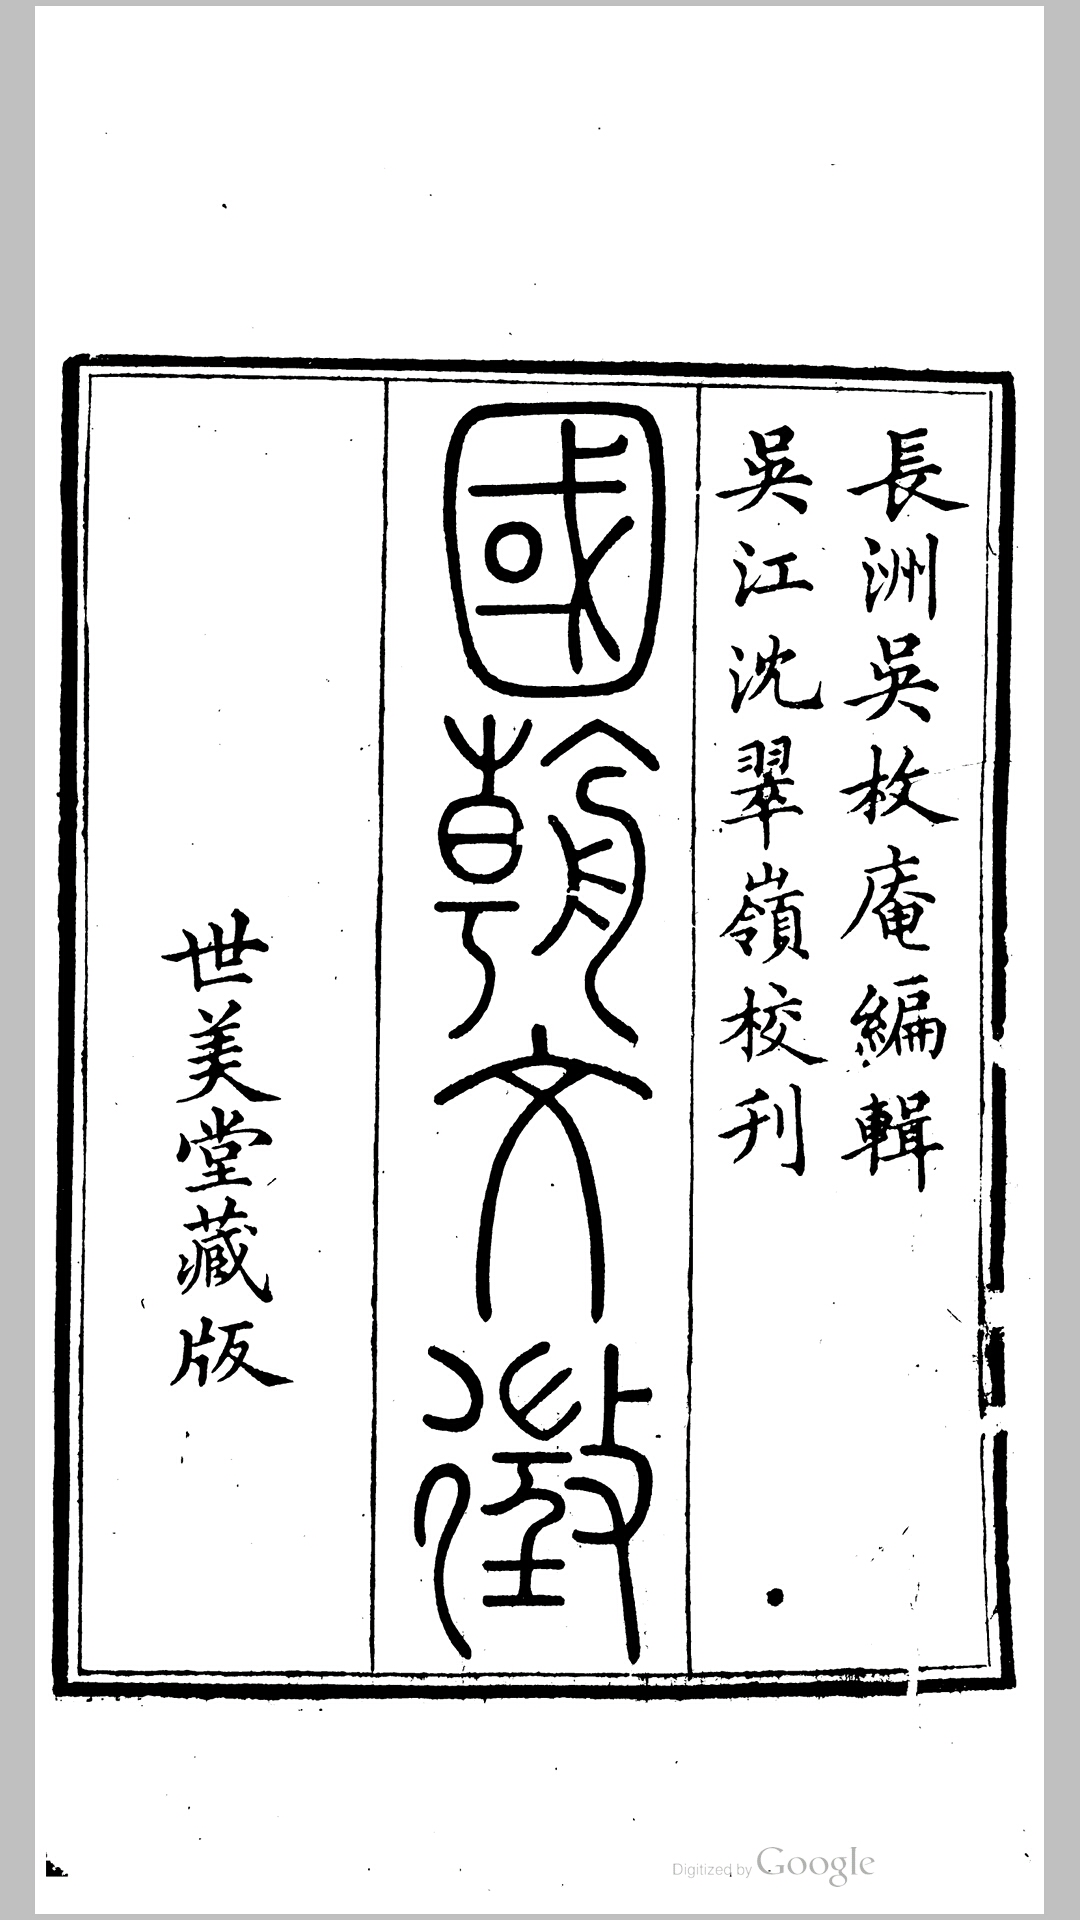 長洲吳枚庵編輯
吳江沈翠嶺校刋
國朝文徵
世美堂藏版
Digitized by Google